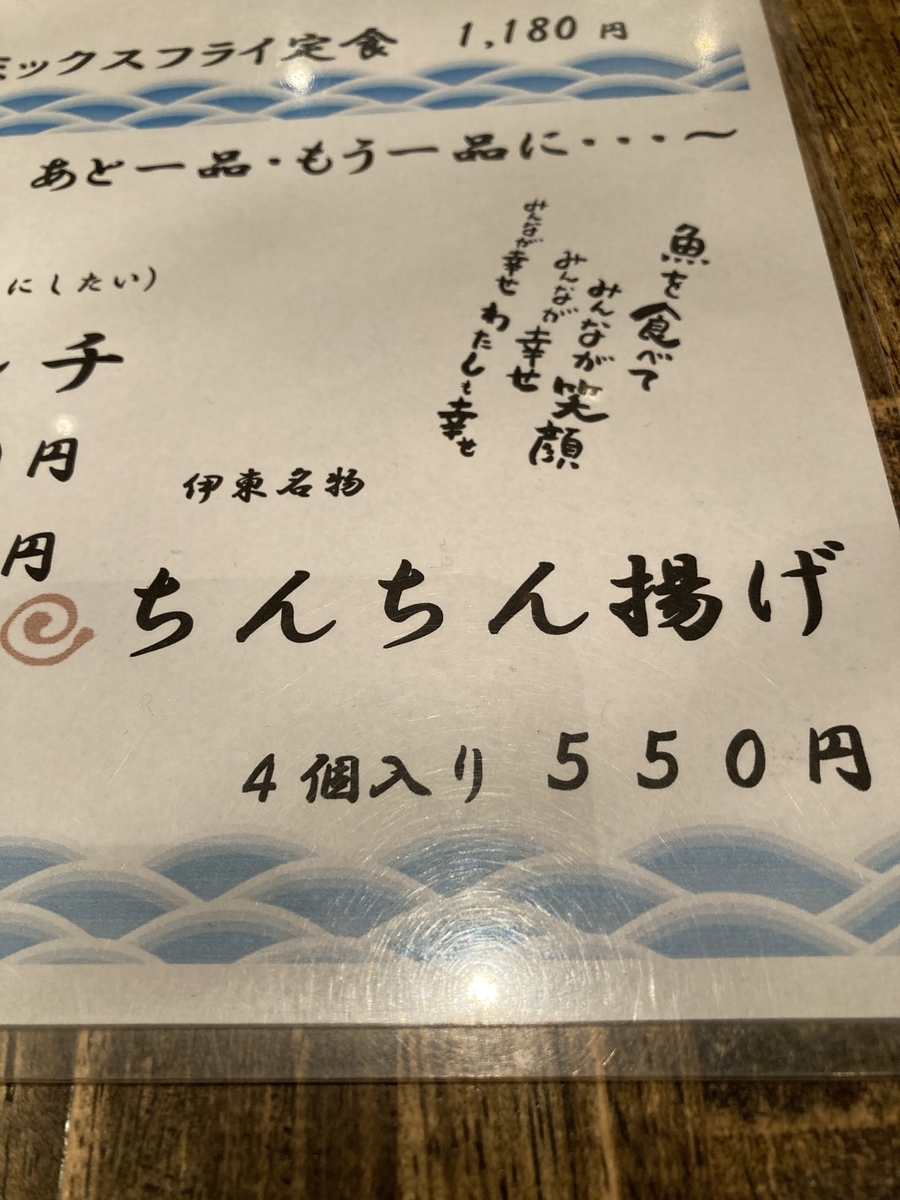 ミックスフライ定食 1,180円
あと一品・もう一品に・・・～
魚を食べて
みんなが笑顔
みんなが幸せ
みんなが幸せ わたしも幸せ
にしたい）
チ
円
円
伊東名物
ちんちん揚げ
4個入り 550円